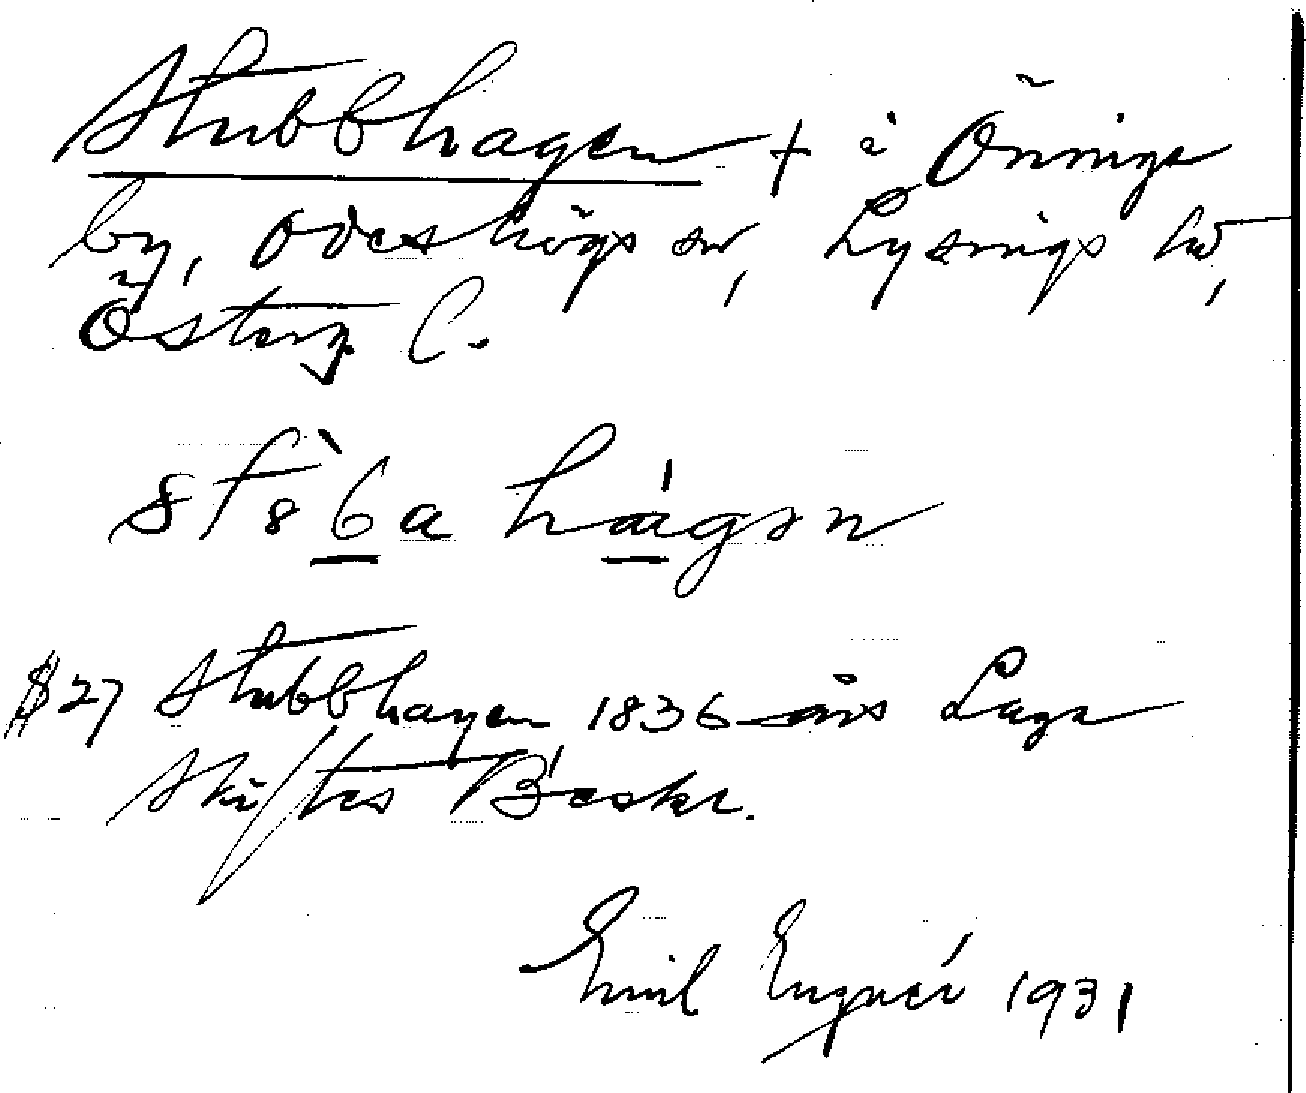 Stubbhagen + i Önninge
by, Ödeshögs sn, Lysings hd,
Österg. L.
hagen
§ 27 Stubbhagen 1836 års Laga
Skiftes Beskr.
Emil Engnér 1931